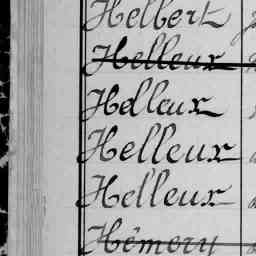 Helbert
Helleux
Helleux
Helleux
Helleux
Hémery